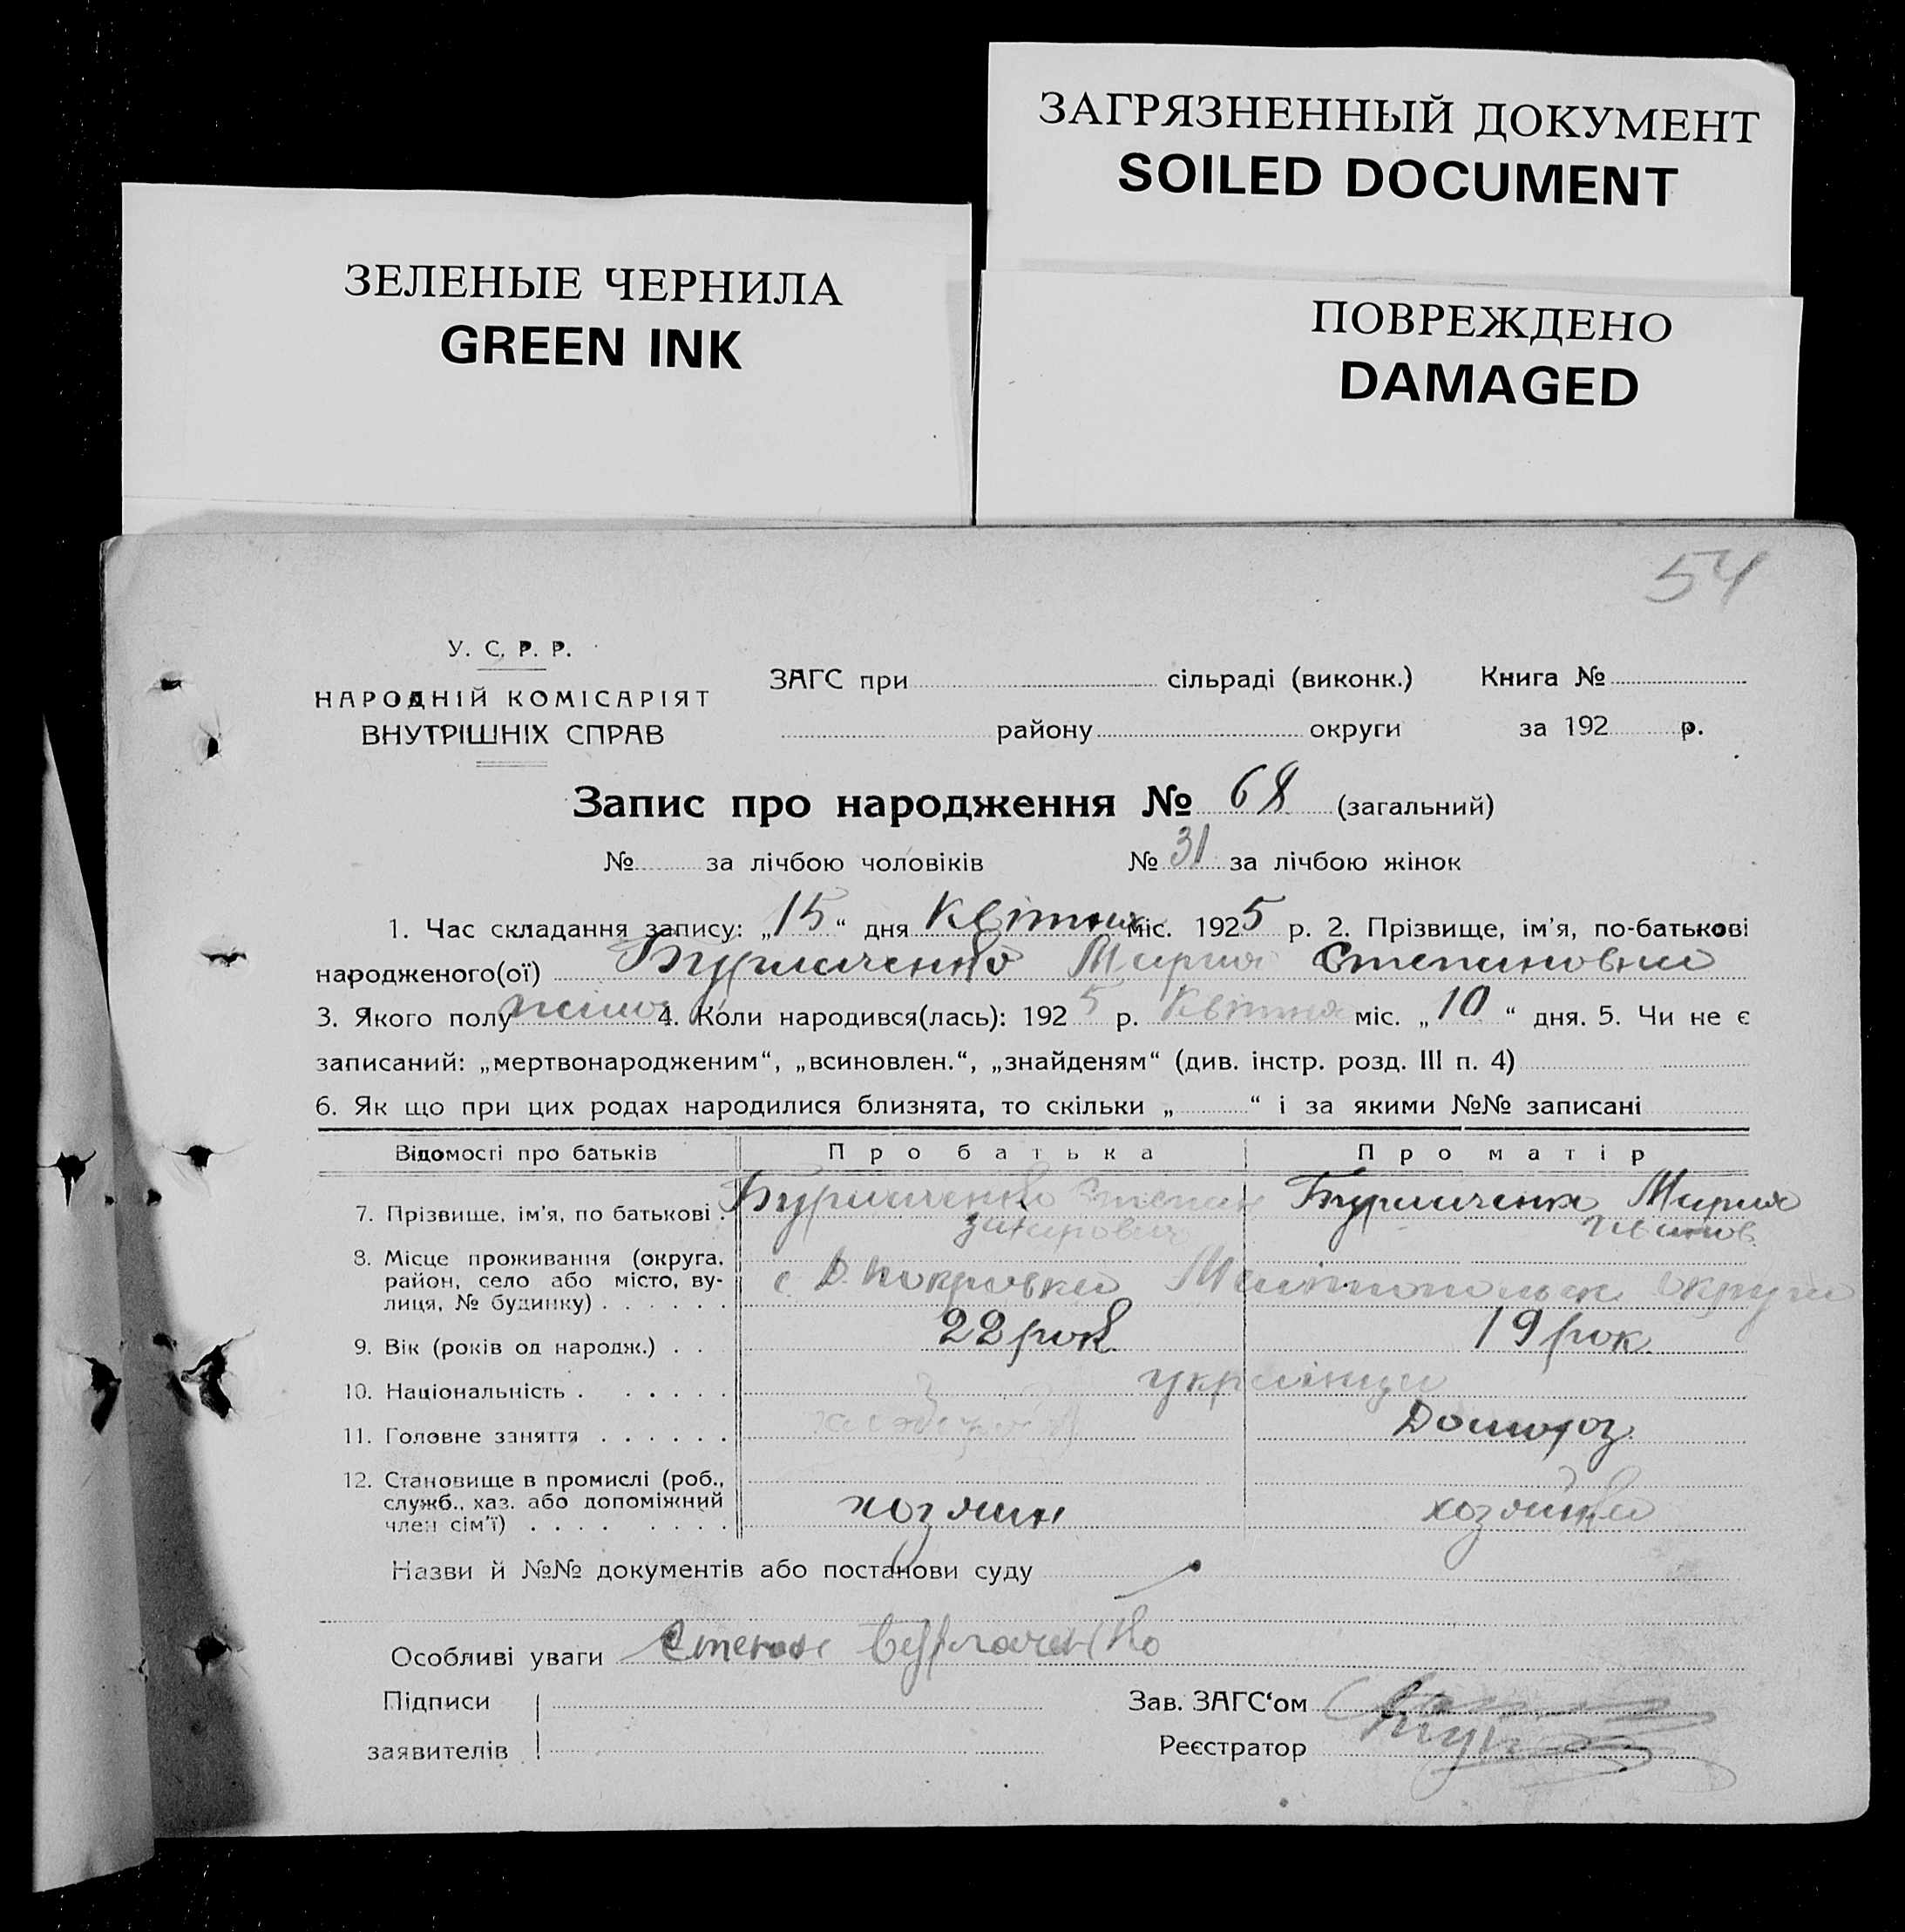 ЗАГРЯЗНЕННЫЙ ДОКУМЕНТ
SOILED DOCUMENT
ЗЕЛЕНЫЕ ЧЕРНИЛА
GREEN INK
ПОВРЕЖДЕНО
DAMAGED
54
У. С. Р. Р.
НАРОДНІЙ КОМІСАРІЯТ
ВНУТРІШНІХ СПРАВ
ЗАГС при сільраді (виконк.) Книга №
району округи за 192 р.
Запис про народження № 68 (загальний)
№ за лічбою чоловіків № 31 за лічбою жінок
1. Час складання запису: „15“ дня Квітня міс. 1925 р. 2. Прізвище, ім'я, по-батькові
народженого(ої) Бурлаченко Мария Степановна
3. Якого полу жіноч 4. Коли народився(лась): 1925 р. Квітня міс. „10“ дня. 5. Чи не є
записаний: „мертвонародженим“, „всиновлен.“, „знайденям“ (див. інстр. розд. III п. 4)
6. Як що при цих родах народилися близнята, то скільки „ “ і за якими №№ записані
Відомості про батьків Про батька Про матір
7. Прізвище, ім'я, по батькові Бурлаченко Степан Бурлаченк Мария
8. Місце проживання (округа,
район, село або місто, ву-
лиця, № будинку) с. Покровка округи
9. Вік (років од народж.) 22 рок 19 рок
10. Національність українци
11. Головне заняття Домогоз
12. Становище в промислі (роб.,
служб., хаз. або допоміжний
член сім'ї) хозяин хозяйка
Назви й №№ документів або постанови суду
Особливі уваги Степан Бурлаченко
Підписи
заявителів
Зав. ЗАГС‘ом
Реєстратор